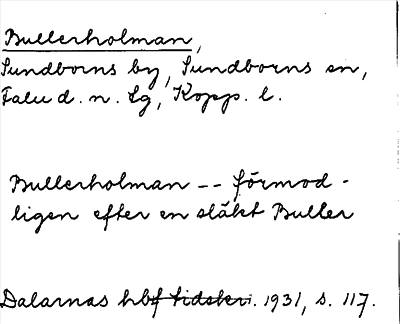 Bullerholman,
Sundborns by, Sundborns sn,
Falu d. n. lg, Kopp. l.
Bullerholman -- förmod-
ligen efter en släkt Buller
Dalarnas hbf tidskr. 1931, s. 117.